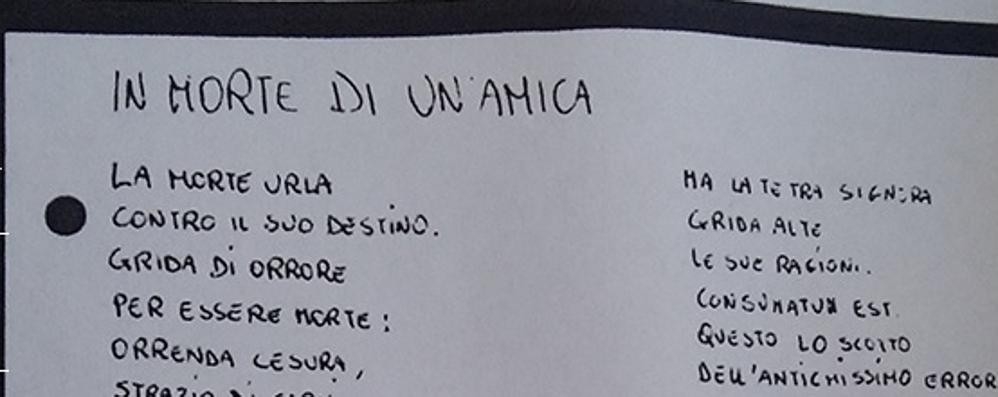 IN MORTE DI UN'AMICA
LA MORTE URLA
CONTRO IL SUO DESTINO.
GRIDA DI ORRORE
PER ESSERE MORTE:
ORRENDA CESURA,
MA LA TETRA SIGNORA
GRIDA ALTE
LE SUE RAGIONI.
CONSUMATUM EST.
QUESTO LO SCOTTO
DELL'ANTICHISSIMO